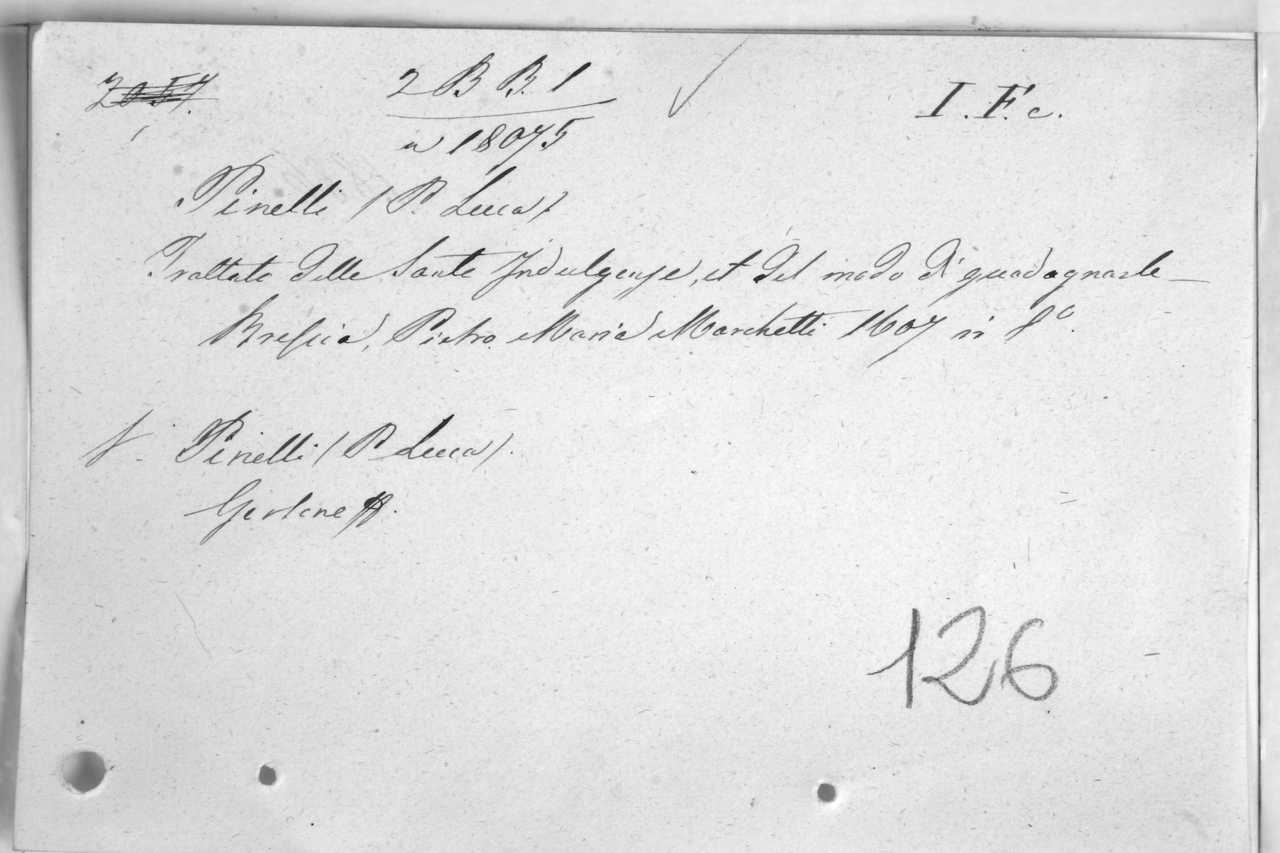 2 B B. 1
I. F. c.
a 18075
Pinelli (P. Luca)
Trattato delle Sante Indulgenze, et del modo di guadagnarle —
Brescia, Pietro Maria Marchetti 1607 in 8°.
Pinelli (P. Luca).
126